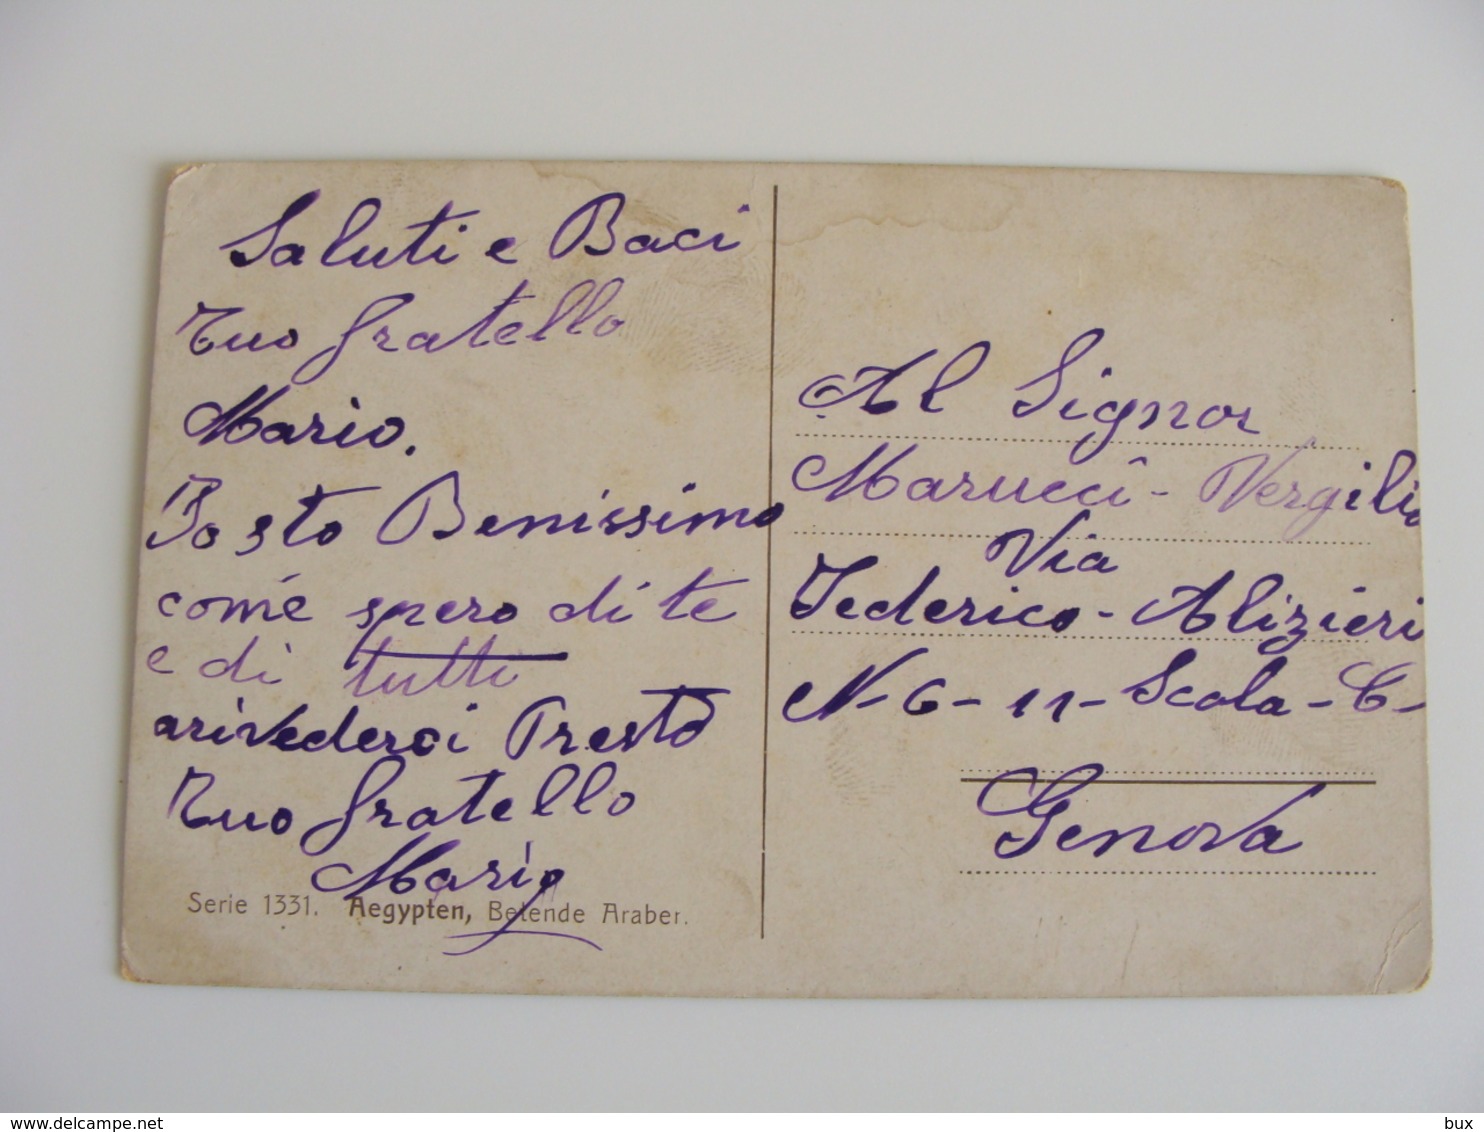 Saluti e Baci
Tuo fratello
Mario.
Io sto Benissimo
come spero di te
e di tutti
arivederci Presto
Tuo fratello
Mario
Serie 1331. Aegypten, Betende Araber.
Al Signor
Marucci - Vergilio
Via
Federico - Alizieri
N - 6 - 11 - Scala - C -
Genova
www.delcampe.net
bux